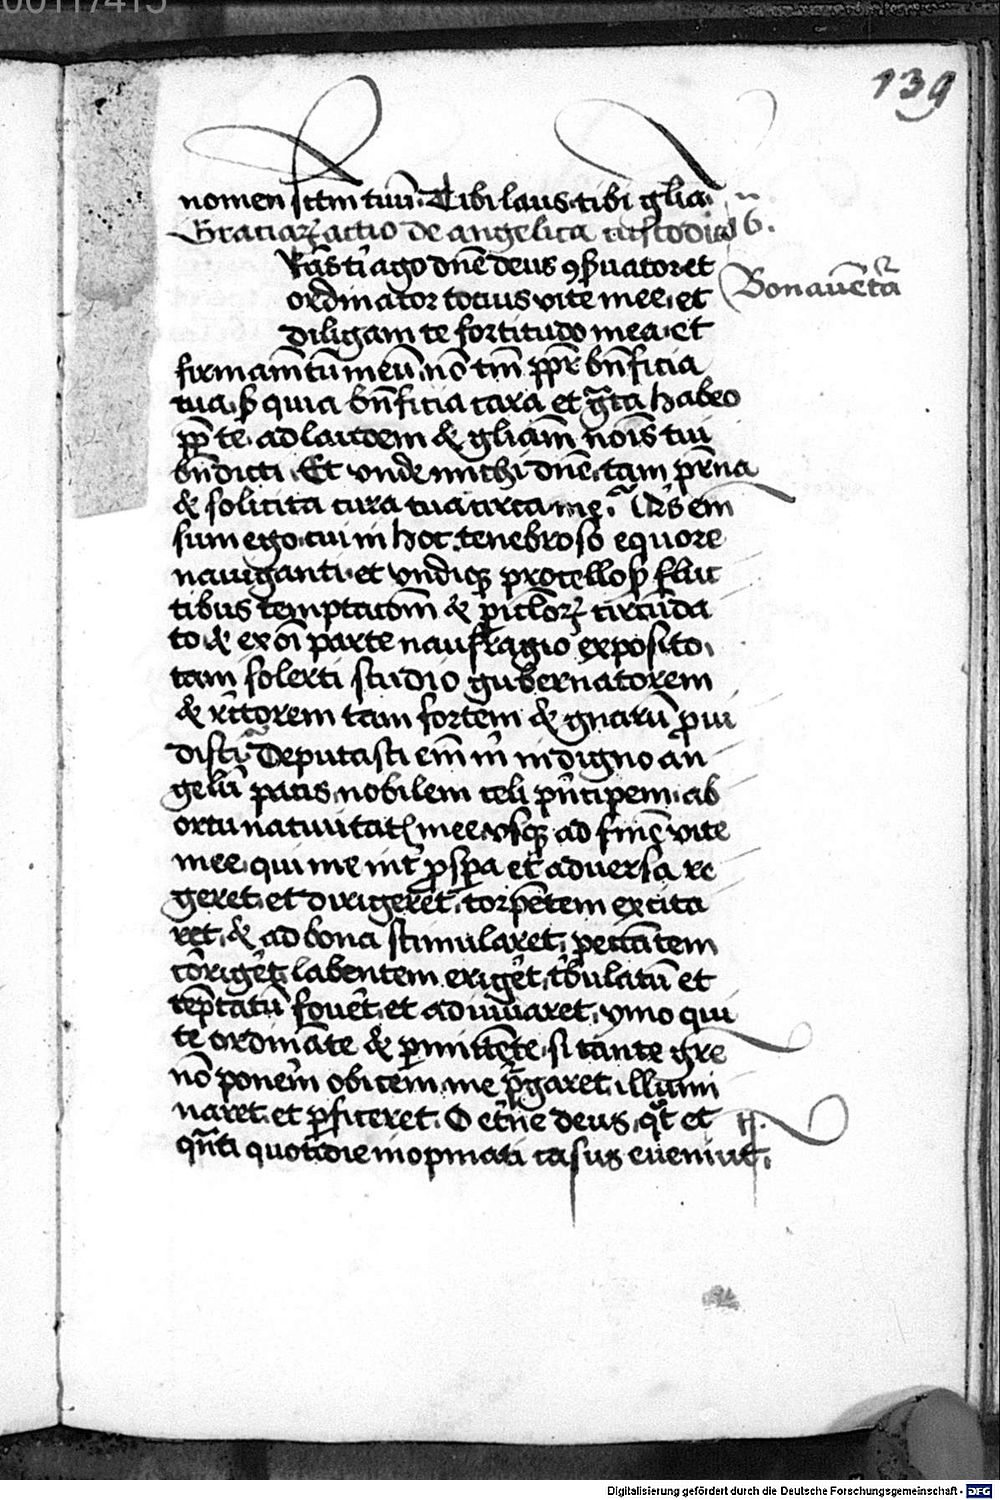 00117415
139
nomen sctm tuū. Tibi laus. tibi glia.
Graciaꝝ actio de angelica custodia 6.
Bonauētᵃ
Rās ti ago dn̄e deus ꝯẜuator et
ordinator tocius vite mee. et
diligam te fortitudo mea. et
firmamētū meū. nō tm̄ ꝓpt̄ bn̄ficia
tua. ẜ quia bn̄ficia cara et gᵃta habeo
ꝓp̄ te. ad laudem & gliam nōis tui
bn̄dicti. Et vnde michi dn̄e. tam pr̄na
& solicita cura tua circa me. Q̇s em̄
sum ego. cui in hoc tenebroso equore
nauiganti. et vndiqꝫ procellosꝭ fluc
tibus temptacōm & pīcl̄oꝝ circūda
to & ex oī parte naufragio exposito.
tam solerti studio gubernatorem
& rc̄torem tam fortem & gnarū ꝓui
disti. Deputasti em̄ m̄ indigno an
gelū pacis. nobilem celi pn̄cipem. ab
ortu natiuitatꝭ mee. vsqꝫ ad finē vite
mee. qui me int̄ ꝓspa et aduersa re
geret. et dirigeret. torpētem excita
ret. & ad bona stimularet. peccātem
cōriget̄. labentem eriget̄. tb̄ulatū et
tēptatū fouet̄. et adiuuaret. ymo qui
te ordināte & ꝑmittēte. si tante gr̄e
nō ponem̄ obicem. me pᵃgaret. illumi
naret. et ꝑficeret. O et̄ne deus. qͦt et
qn̄ti quottidie inopinati casus eueniūt.
Digitalisierung gefördert durch die Deutsche Forschungsgemeinschaft - DFG